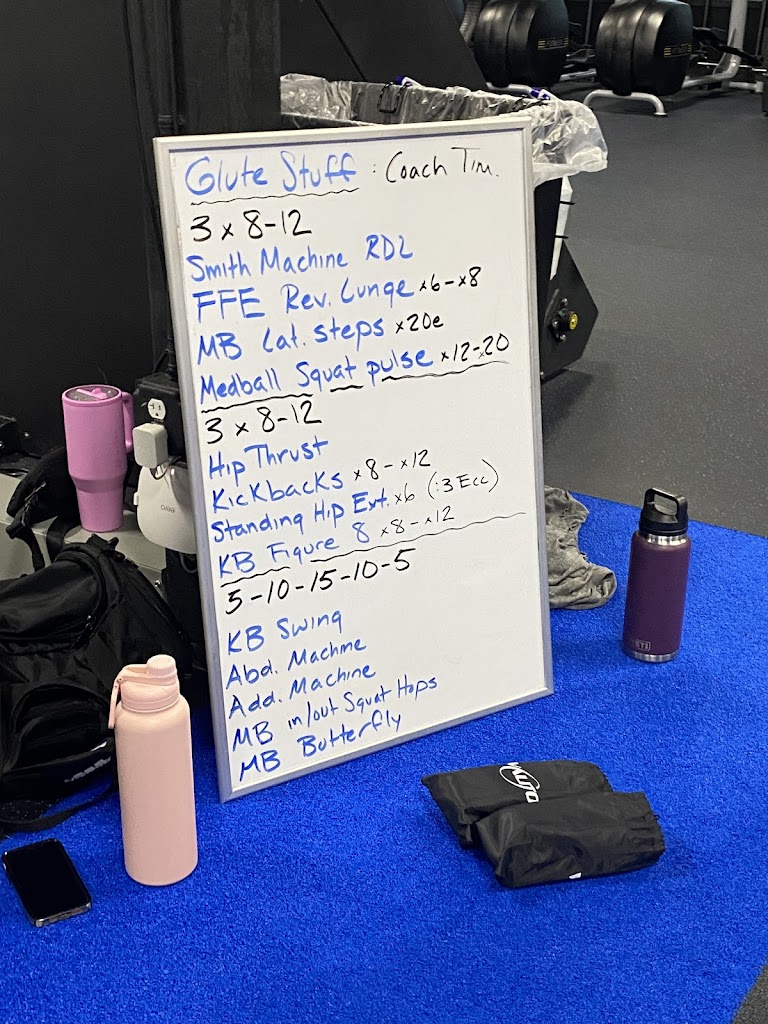 Glute Stuff : Coach Tim.
3 x 8-12
Smith Machine RDL
FFE Rev. Lunge x6-x8
MB Lat. steps x20e
Medball Squat pulse x12-20
3 x 8-12
Hip Thrust
Kickbacks x8-x12
Standing Hip Ext. x6 (:3 Ecc)
KB Figure 8 x8-x12
5-10-15-10-5
KB Swing
Abd. Machine
Add. Machine
MB in/out Squat Hops
MB Butterfly
YETI